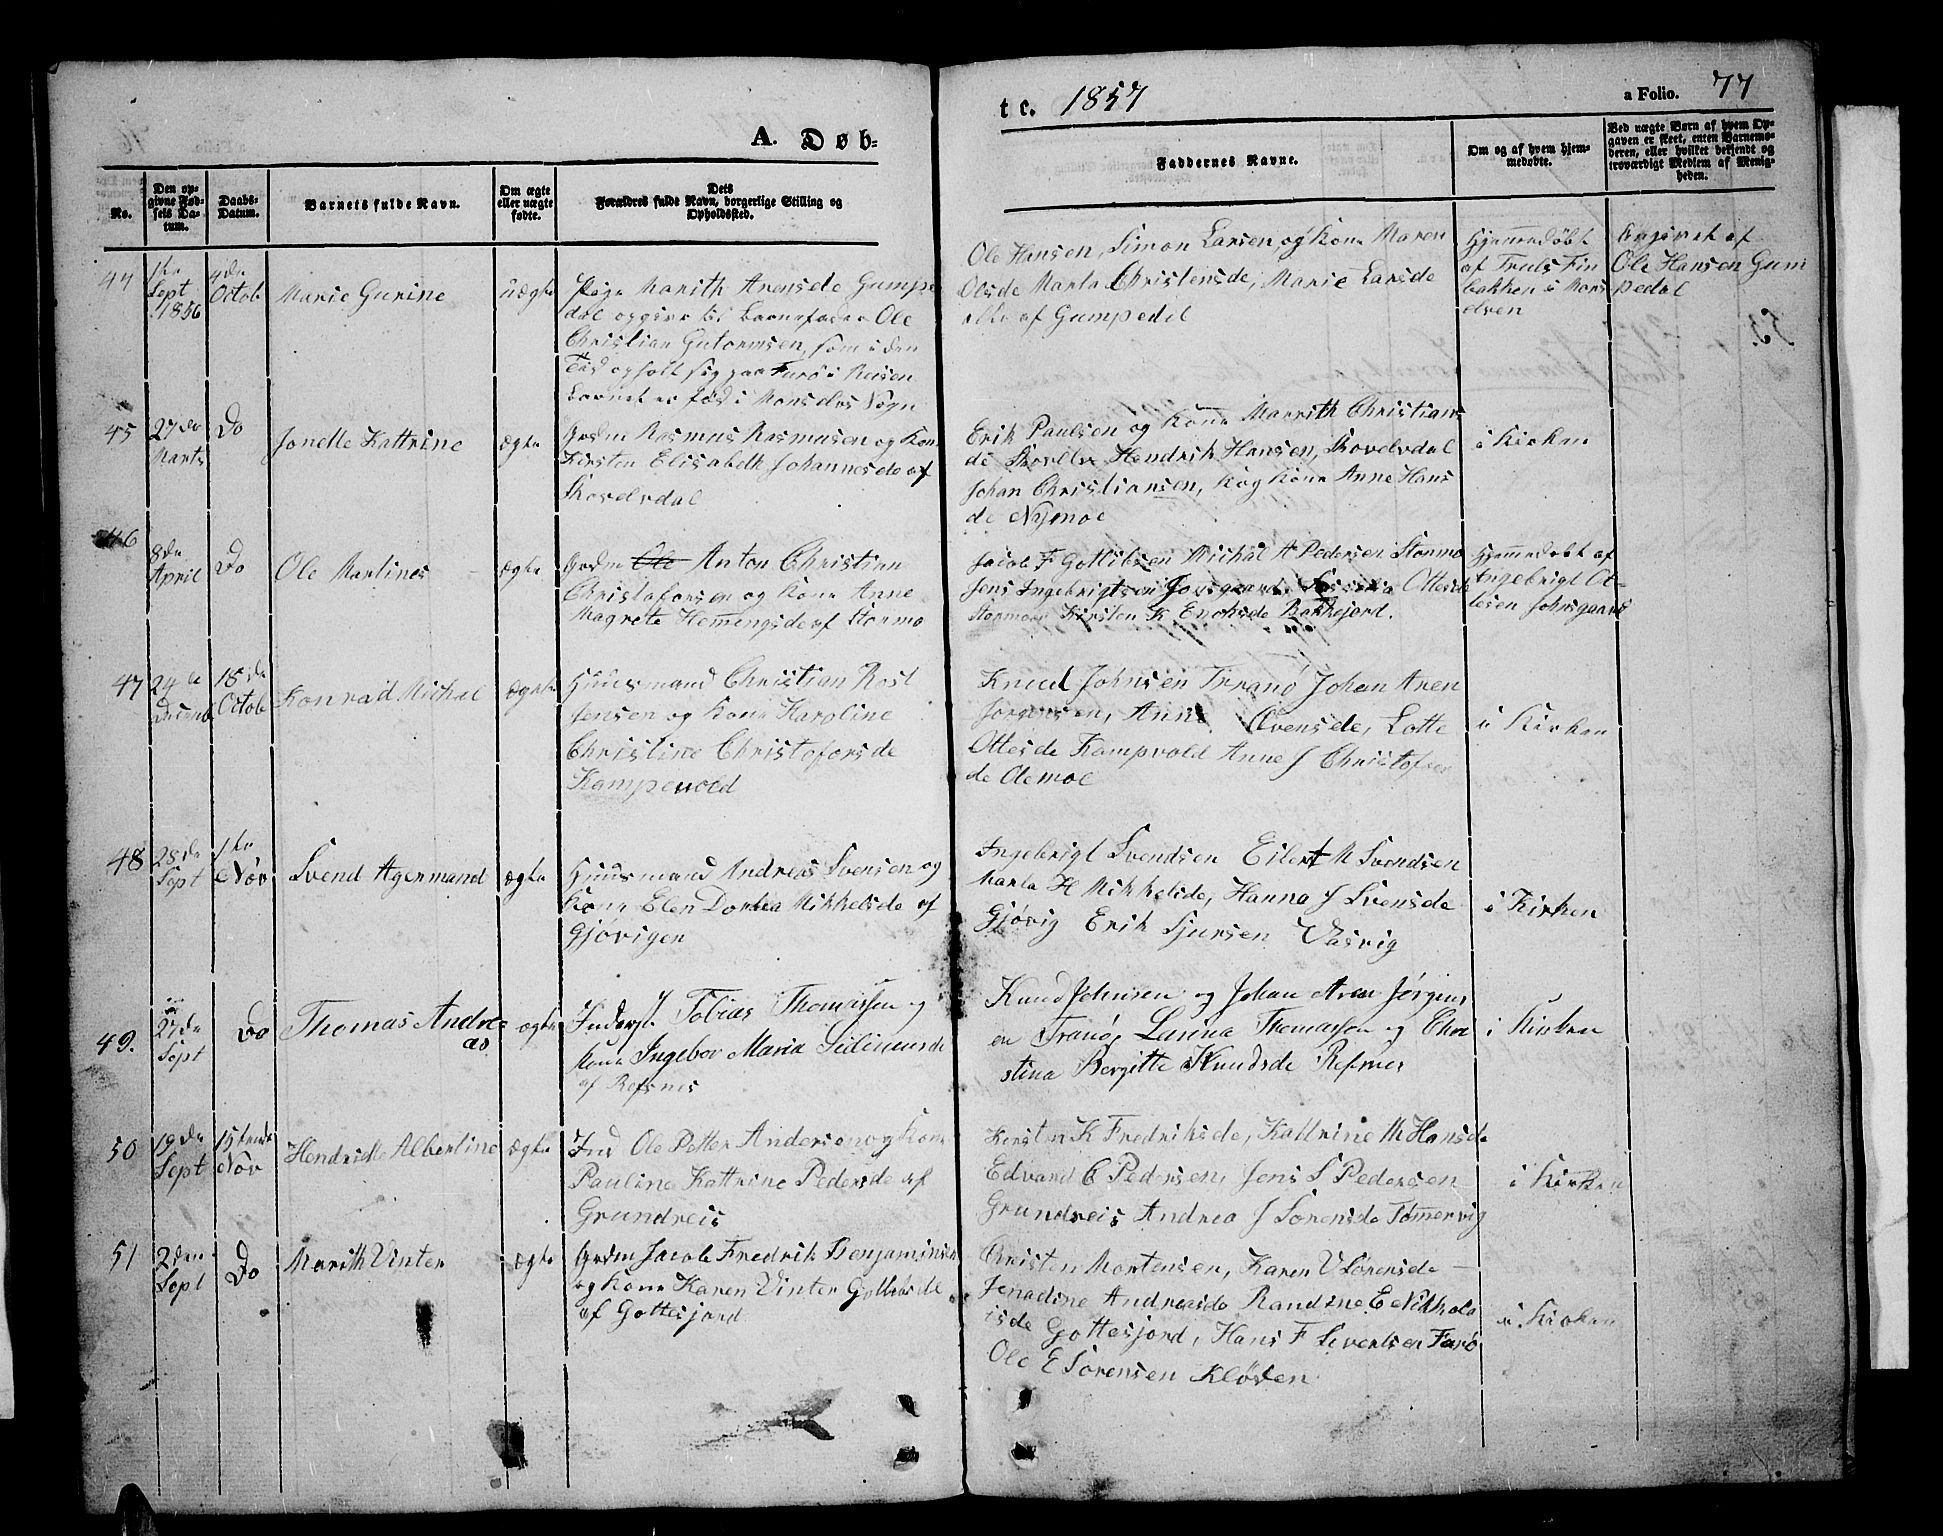 A. Døb-
t e. 1857
a Folio. 77
No.
Den op-
givne Fød-
sels Da-
tum.
Daabs-
Datum.
Barnets fulde Navn.
Om ægte
eller uægte
fødte.
Dets
Forældres fulde Navn, borgerlige Stilling og
Opholdssted.
Faddernes Navne.
Om og af hvem hjem-
medøbte.
Ved uægte Børn af hvem Op-
gaven er skeet, enten Barnemo-
deren, eller hvilket bekjendt og
troværdigt Medlem af Menig-
heden.
44
1ste
Sept
1856
4de
Octob
Marie Gurine
uægte
Pige Marith Arensde Gumpe
dal opgiver til Barnefader Ole
Christian Gutormsen, som i den
Tid opholt sig paa Furø i Reisen
Barnet er fød i Monselvs Sogn
Ole Hansen, Simon Larsen, og Kone Maren
Olsde Marta Christensde, Marie Larsde
alle af Gumpedal
Hjemmedøbt
af Truls Fin
bakken i Mons
elven
Angivet af
Ole Hansen Gum
pedal
45
27de
Marts
Do
Jonelle Kattrine
ægte
Grdm Rasmus Rasmusen og Kone
Kirsten Elisabeth Johannesde af
Skovelvdal
Erik Paulsen og Kone Marrith Christians
de Skovelv Hendrik Hansen, Skovelvdal
Johan Christiansen, og Kone Anne Hans
de Nymoe
i Kirken
46
8de
April
Do
Ole Martines
ægte
Grdm Ole Anton Christian
Christoforsen og Kone Anne
Magrete Hemmingsde af Stormo
Jacob F Gottlibsen Michal A Pedersen Stormo
Jens Ingebrigtsen Jonsgaard, Ottesde
Stormoe Kirsten K Enoksde Bakkejord.
Hjemmedøbt af
Ingebrigt Ot-
tesen Johnsgaard
47
24de
Decemb
18de
Octob
Konrad Michal
ægte
Huusmand Christian Rost
Jensen og Kone Karoline
Christine Christoforsde
Kampevold
Knud Johnsen Tranø Johan Aren
Jørgensen, Anne Evensde, Lotte
Ottesde Kampvold Anne J Christofers
de Olemoe
i Kirken
48
28de
Sept
1ste
Nov
Svend Agermand
ægte
Huusmand Andreas Svensen og
Kone Elen Dortea Mikkelsde af
Gjøvigen
Ingebrigt Svendsen Eilert M Svendsen
Marta H Mikkelsde, Hanna J Svensde
Gjøvig Erik Sjursen Vasvig
i Kirken
49.
27de
Sept
Do
Thomas Andre-
as
ægte
Inderst. Tobias Thomassen og
Kone Ingebor Maria Sediniusde
af Refsnes
Knud Johnsen og Johan Aren Jørgens
en Tranø, Lenina Thomassen og Chri
stina Bergitte Knudsde Refsnes
i Kirken
50
19de
Sept
15tende
Nov
Hendrikke Albertine
ægte
Ind Ole Petter Anderson og Kone
Pauline Kattrine Pedersde af
Grundreis
Kirsten K Fredriksde, Kattrine M Hansde
Edvard C Pedersen, Jens S Pedersen
Grundreis Andrea J Sorensde Tømmervig
i Kirken
51
2den
Sept
Do
Marith Vinter
ægte
Grdm Jacob Fredrik Benjaminsen
og Kone Karen Vinter Gotliebsde
af Gottesjord
Christen Mortensen, Karen V Sorensde
Jenadine Andreasde Randine E Nikkola
isde Gottesjord, Hans F Sivertsen Farø
Ole E Sorensen Kløven
i Kirken